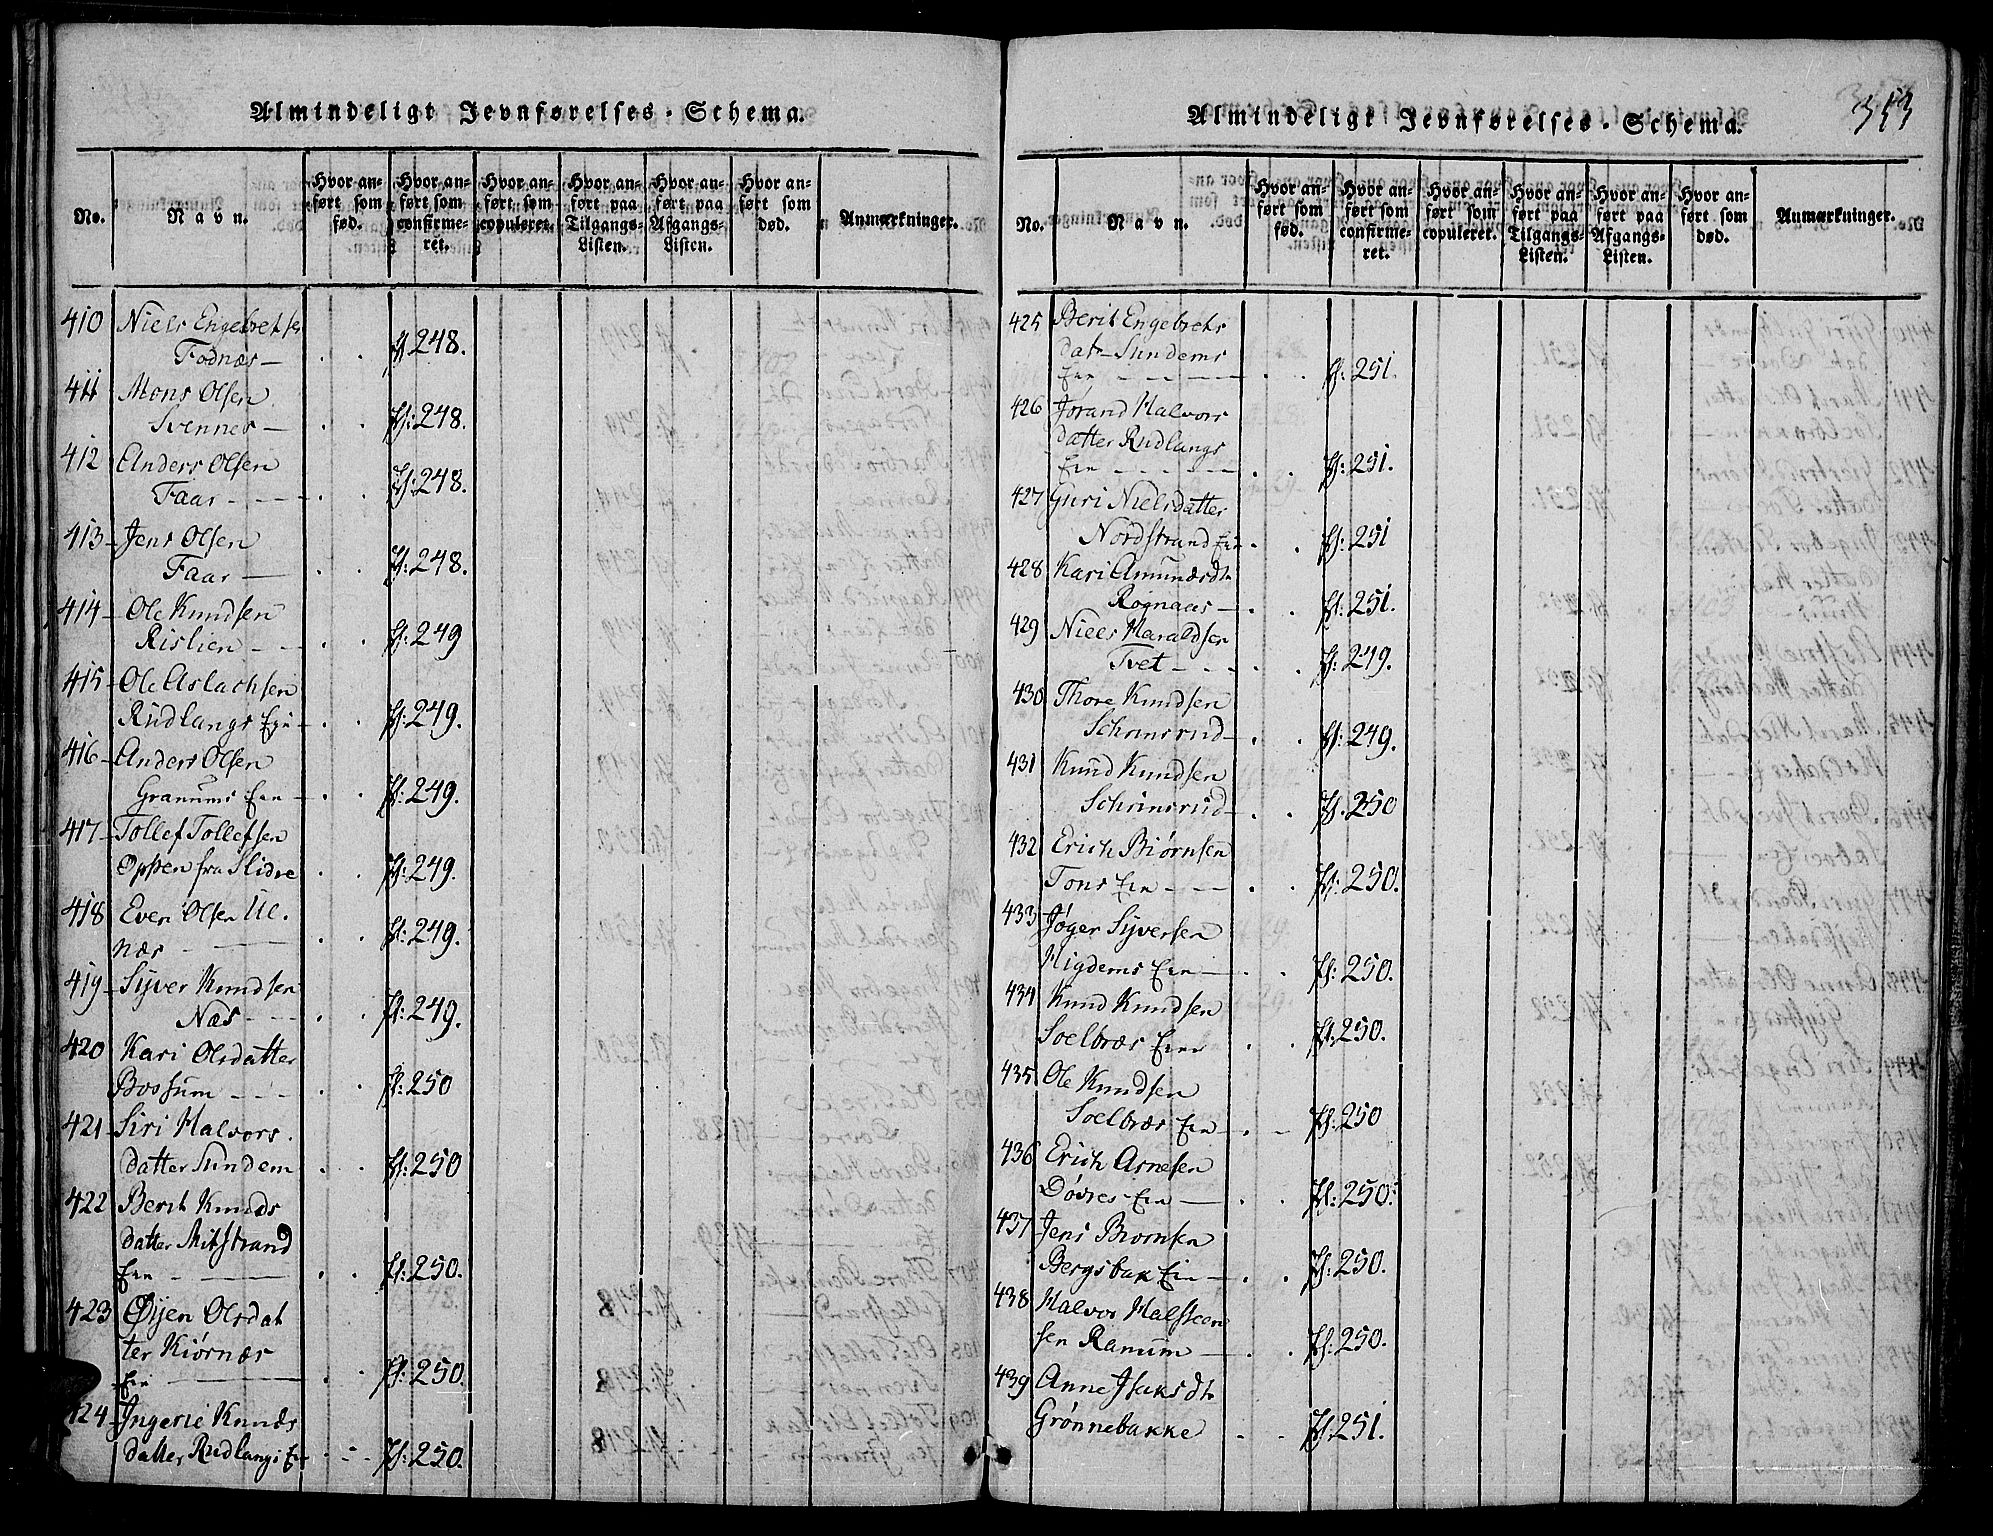 Almindeligt Jevnførelses-Schema.
No.
Navn.
Hvor an-
ført som
fød.
Hvor an-
ført som
confirme-
ret.
Hvor an-
ført som
copuleret.
Hvor an-
ført paa
Tilgangs-
Listen.
Hvor an-
ført paa
Afgangs-
Listen.
Hvor an-
ført som
død.
Anmærkninger.
410 Niels Engebretsen
Fodnæs — . . fl 248.
411 Mons Olsen
Svennes — . . fl: 248.
412 Anders Olsen
Faar - - - . . fl: 248.
413 - Jens Olsen
Faar — . . fl: 248.
414 - Ole Knudsen
Rislien - - . . fl: 249
415 - Ole Aslachsen
Rudlangs Eie - . . fl: 249.
416 - Anders Olsen
Granums Eie - . . fl: 249.
417 - Tollef Tollefsen
Oppen fra Slidre . . fl: 249.
418 Even Olsen Ul.
næs - — . . fl: 249.
419 - Syver Knudsen
Næs - - - . . fl: 249.
420 Kari Olsdatter
Bossum - - - . . fl: 250
421 - Siri Halvors.
datter Sundem . . fl: 250
422 Berit Knuds
datter Mitstrand
Eie - — . . fl: 250.
423 Øijen Olsdat
ter Kiørnæs
Eie — . . fl: 250.
424 - Ingerie Knuds
datter Rudlangs Eie . - fl: 250.
353
Almindeligt Jevnførelses-Schema.
No.
Navn.
Hvor an-
ført som
fød.
Hvor an-
ført som
confirme-
ret.
Hvor an-
ført som
copuleret.
Hvor an-
ført paa
Tilgangs-
Listen.
Hvor an-
ført paa
Afgangs-
Listen.
Hvor an-
ført som
død.
Anmærkninger.
425 Berit Engebrets
dat - Sundems
Eie - - — . . fl: 251.
426 Jørand Halvors
datter Rudlangs
Eie - - - - . . fl: 251.
427 Guri Nielsdatter
Nordstrand Eie . . fl: 251
428 Kari Amundsdtr
Rognaas - . . fl: 251.
429 Niels Haraldsen
Tvet - - - . . fl: 249.
430 Thore Knudsen
Schrinsrud - . . fl: 249.
431 Knud Knudsen
Schrinsrud - . . fl. 250
432 Erich Biørnsen
Tons Eie - - - . . fl: 250.
433 - Jøger Syversen
Migdems Eie - . . fl: 250.
434 Knud Knudsen
Soelbræs Eie . . fl: 250.
435 Ole Knudsen
Soelbræs Eie - . - fl: 250
436 Erich Arnesen
Døvres Eie — . . fl: 250.
437 - Jens Biornsen
Bergsbak Eie - . . fl: 250.
438 Halvor Halsteen
sen Ranum — . . fl: 250.
439 Anne Isaksdtr
Grønnebakke . . fl: 251.